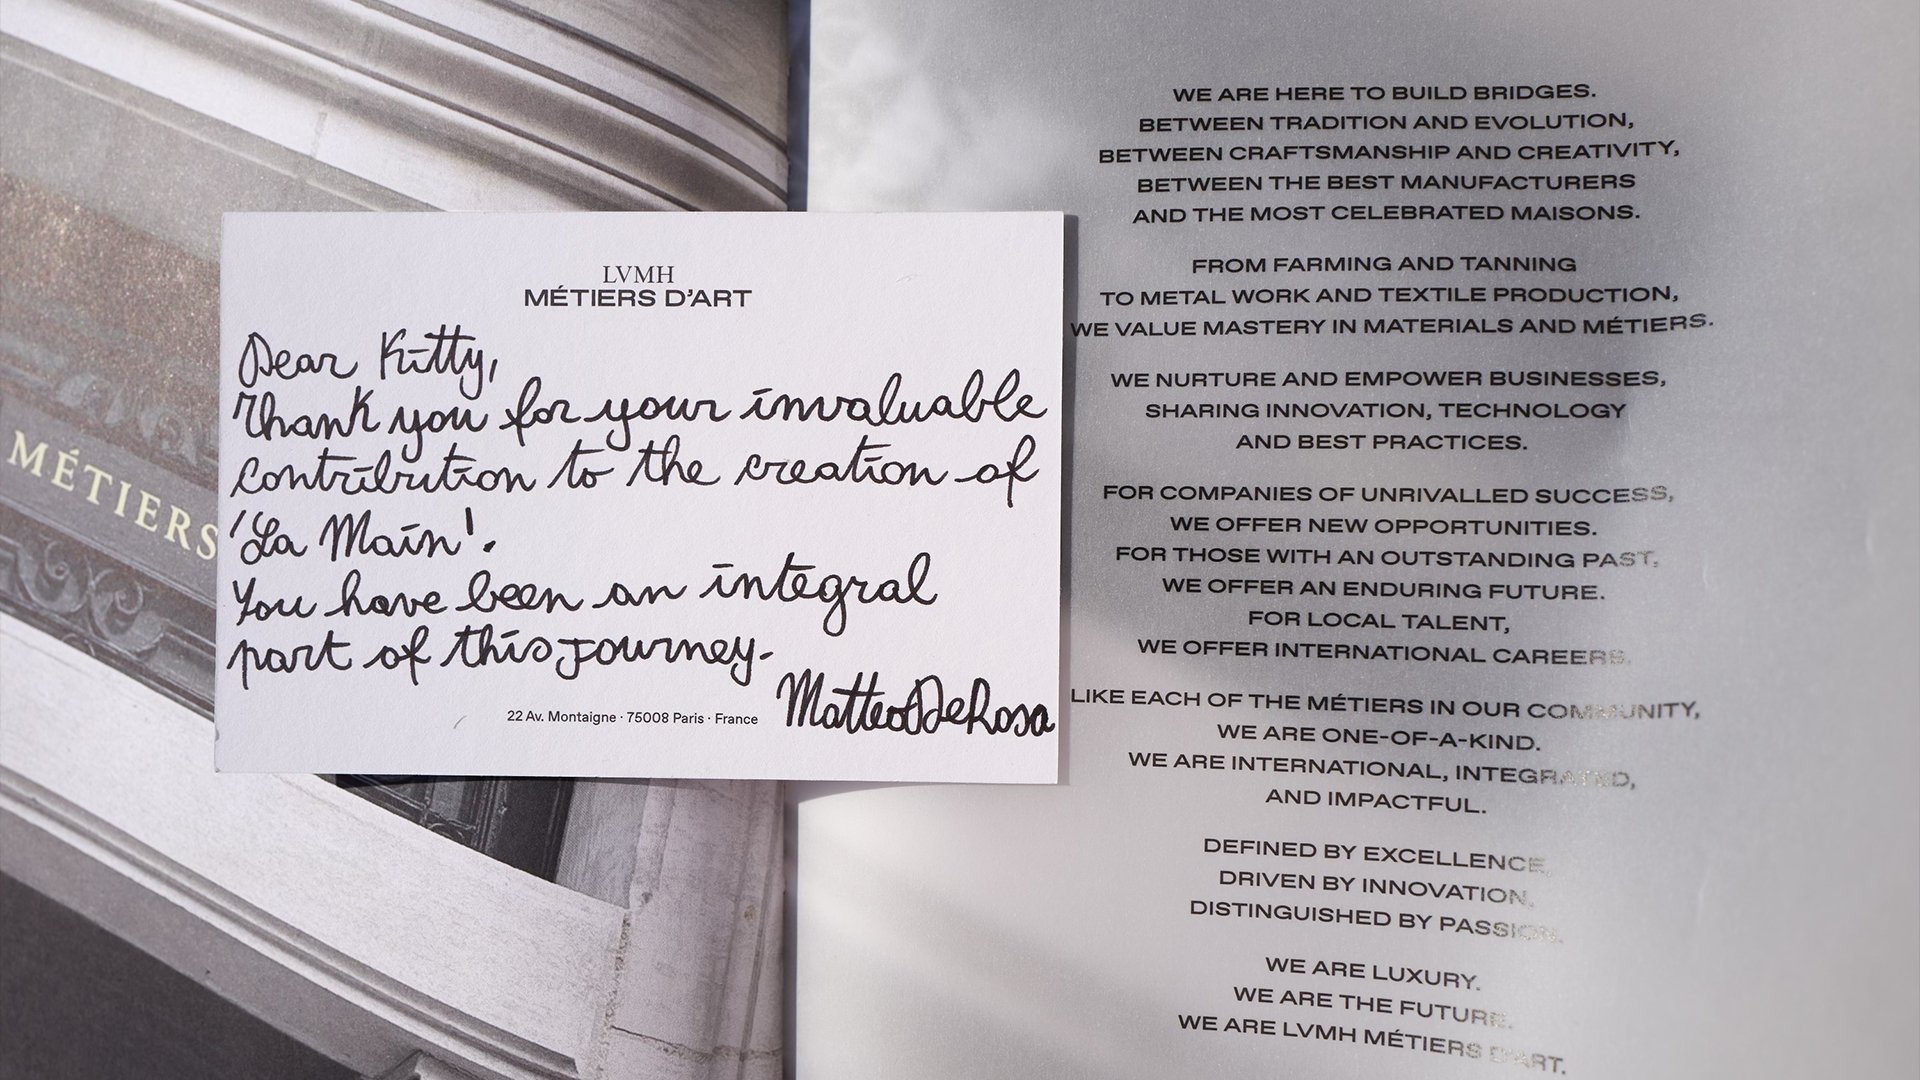 MÉTIERS
LVMH
MÉTIERS D'ART
Dear Kitty,
Thank you for your invaluable
contribution to the creation of
'La Main'.
You have been an integral
part of this journey.
Matteo De Rosa
22 Av. Montaigne · 75008 Paris · France
WE ARE HERE TO BUILD BRIDGES.
BETWEEN TRADITION AND EVOLUTION,
BETWEEN CRAFTSMANSHIP AND CREATIVITY,
BETWEEN THE BEST MANUFACTURERS
AND THE MOST CELEBRATED MAISONS.
FROM FARMING AND TANNING
TO METAL WORK AND TEXTILE PRODUCTION,
WE VALUE MASTERY IN MATERIALS AND MÉTIERS.
WE NURTURE AND EMPOWER BUSINESSES,
SHARING INNOVATION, TECHNOLOGY
AND BEST PRACTICES.
FOR COMPANIES OF UNRIVALLED SUCCESS,
WE OFFER NEW OPPORTUNITIES.
FOR THOSE WITH AN OUTSTANDING PAST,
WE OFFER AN ENDURING FUTURE.
FOR LOCAL TALENT,
WE OFFER INTERNATIONAL CAREERS.
LIKE EACH OF THE MÉTIERS IN OUR COMMUNITY,
WE ARE ONE-OF-A-KIND.
WE ARE INTERNATIONAL, INTEGRATED,
AND IMPACTFUL.
DEFINED BY EXCELLENCE,
DRIVEN BY INNOVATION,
DISTINGUISHED BY PASSION.
WE ARE LUXURY.
WE ARE THE FUTURE.
WE ARE LVMH MÉTIERS D'ART.